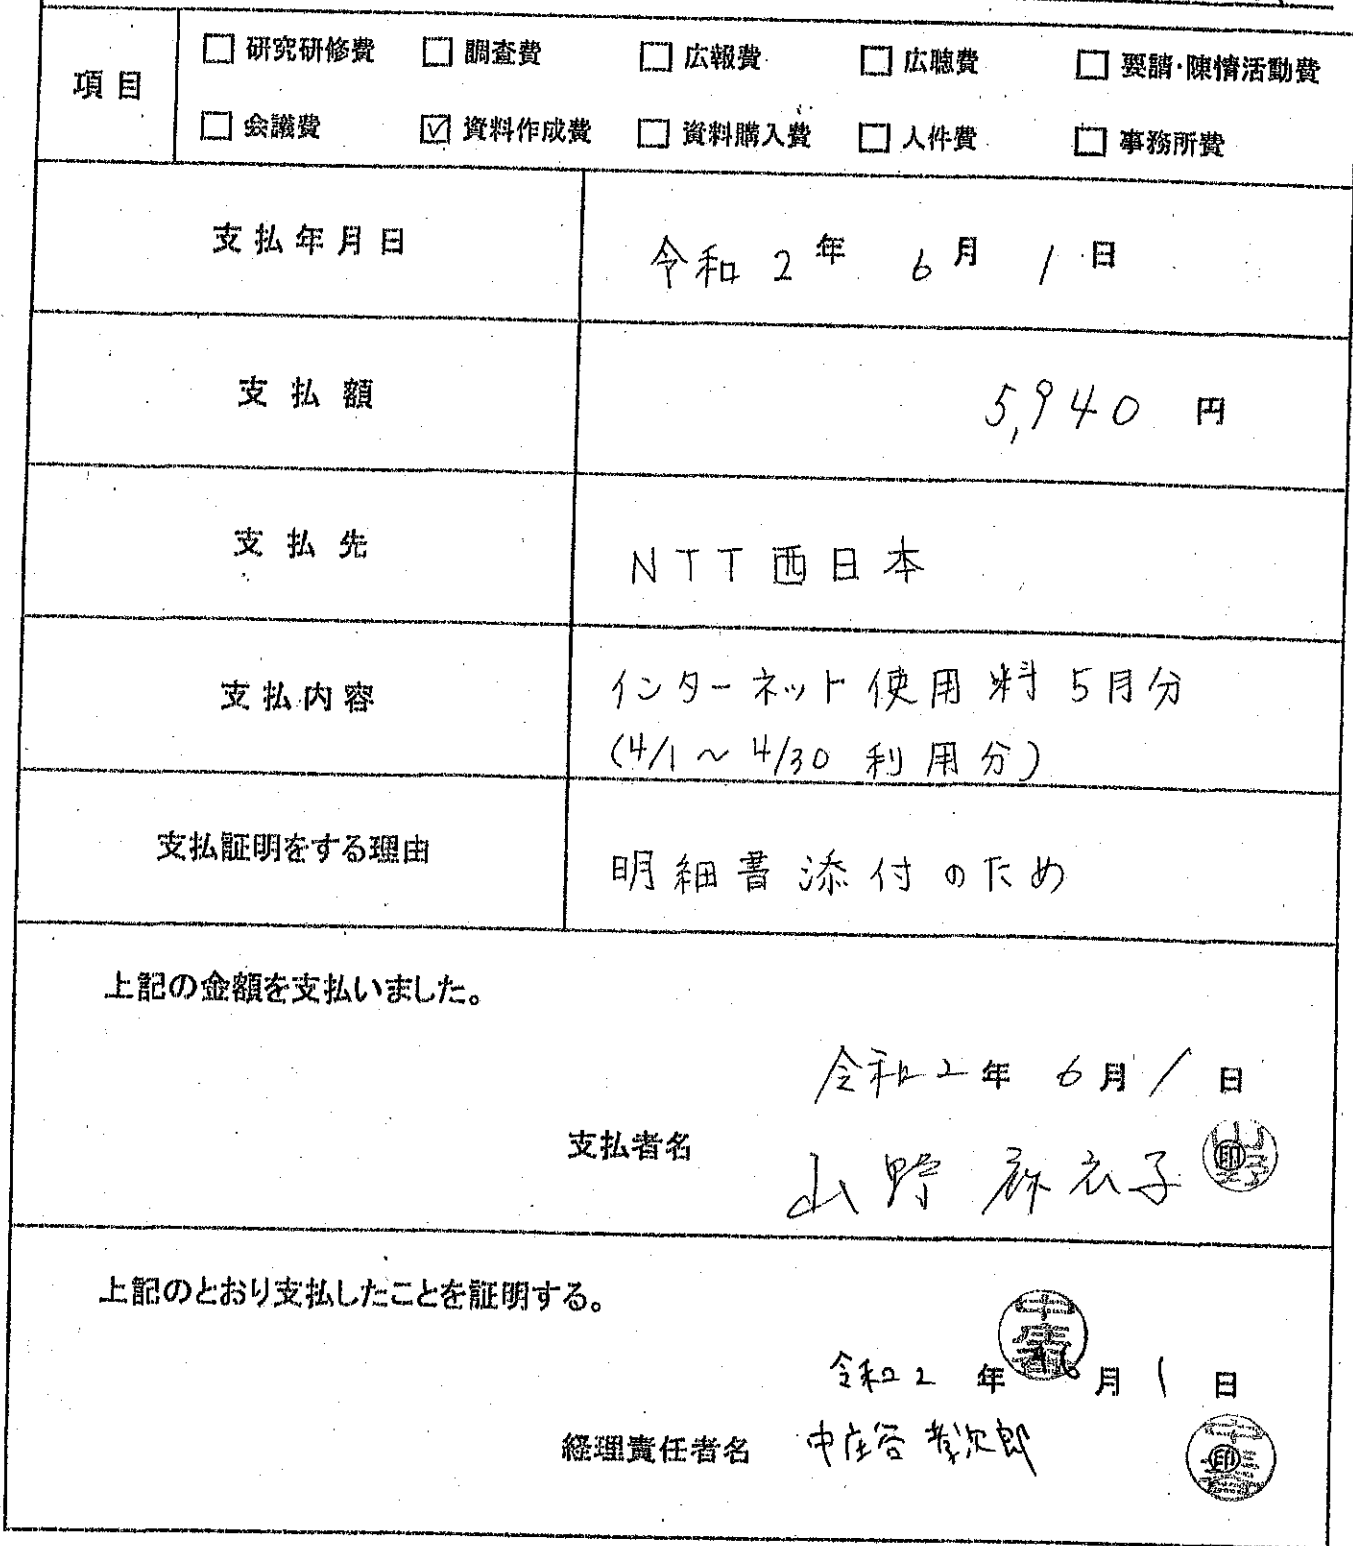 項目
□ 研究研修費 □ 調査費 □ 広報費 □ 広聴費 □ 要請・陳情活動費
□ 会議費 ☑ 資料作成費 □ 資料購入費 □ 人件費 □ 事務所費
支払年月日 令和 2 年 6 月 1 日
支払額 5,940 円
支払先 NTT西日本
支払内容 インターネット使用料 5月分
(4/1～4/30 利用分)
支払証明をする理由 明細書添付のため
上記の金額を支払いました。
令和 2 年 6 月 1 日
支払者名 山野 麻衣子 印
上記のとおり支払したことを証明する。
令和 2 年 6 月 1 日
経理責任者名 中庄谷 孝次郎 印